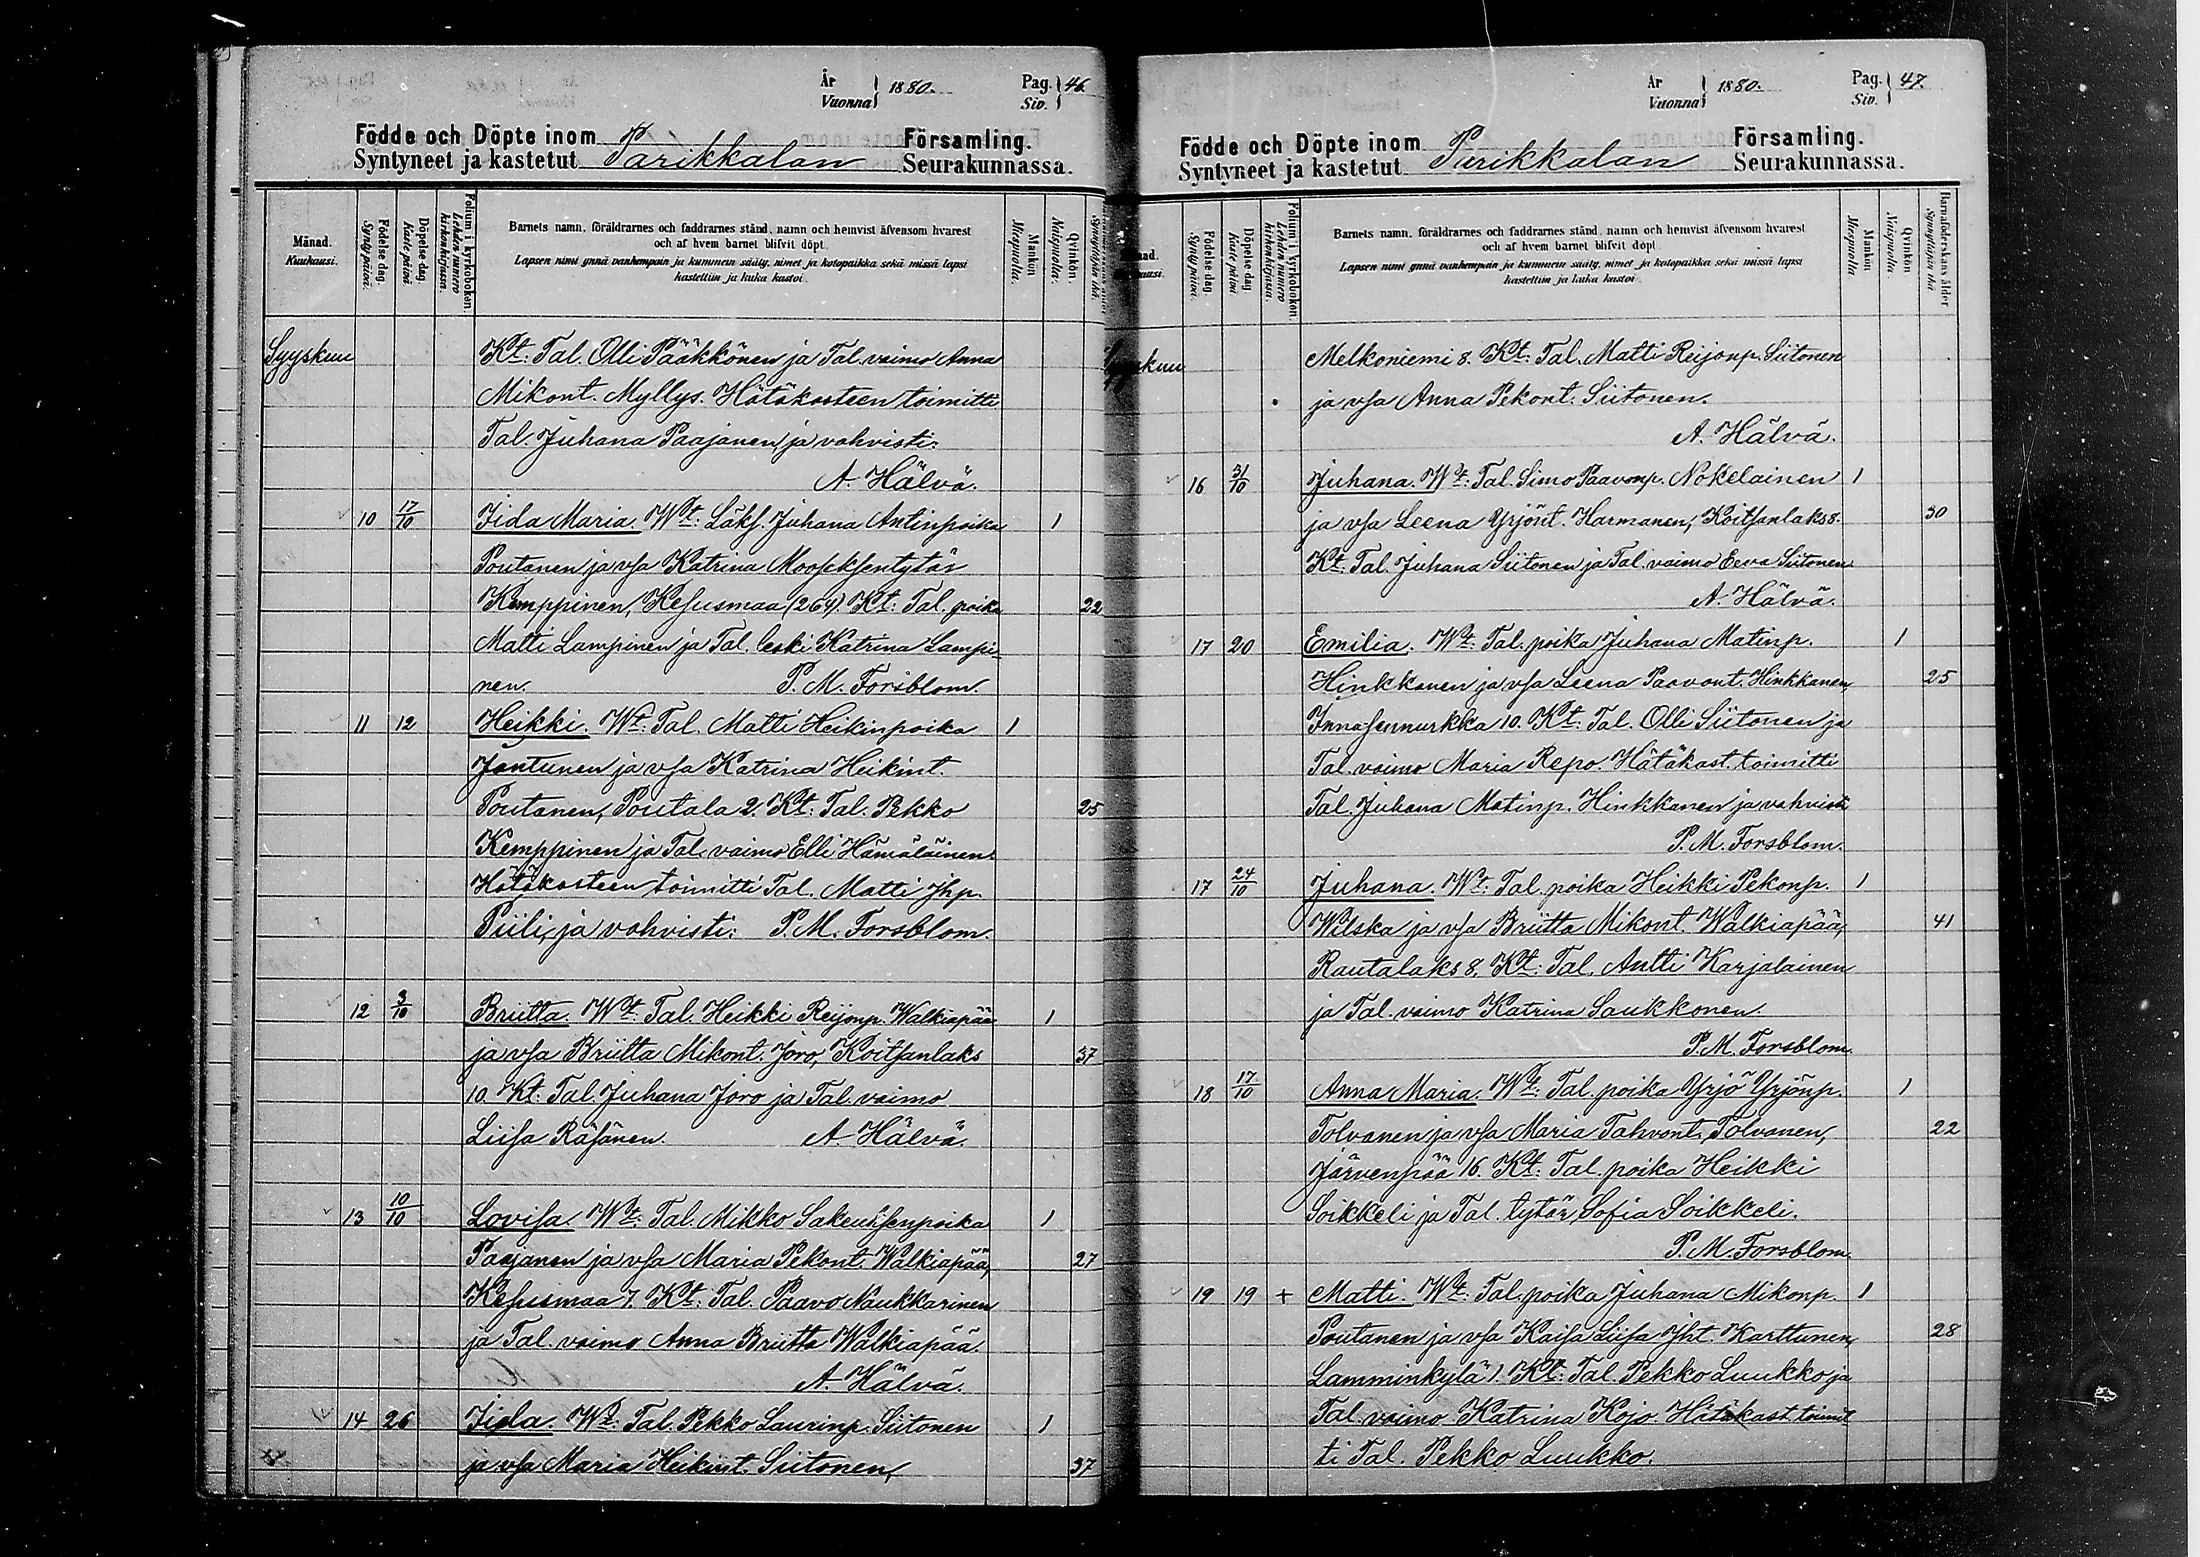 År
Vuonna } 1880. Pag. } 46.
Siv.
Födde och Döpte inom Församling.
Syntyneet ja kastetut Parikkalan Seurakunnassa.
Månad.
Kuukausi.
Födelse dag.
Synty päivä.
Döpelse dag.
Kaste päivä
Folium i kyrkoboken.
Lehden numero
kirkonkirjassa.
Barnets namn, föräldrarnes och faddrarnes stånd, namn och hemvist äfvensom hvarest
och af hvem barnet blifvit döpt.
Lapsen nimi ynnä vanhempain ja kummein sääty, nimet ja kotopaikka sekä missä lapsi
kastettiin ja kuka kastoi.
Mankön
Miespuolta.
Qvinkön.
Naispuolta.
Syyskuu Kt: Tal. Olli Pääkkönen ja Tal. vaimo Anna
Mikont. Myllys. Hätäkasteen toimitti
Tal. Juhana Paajanen, ja vahvisti:
A. Hälvä.
10 17/10 Iida Maria. Wt: Läks. Juhana Antinpoika 1
Poutanen ja vsa Katrina Mooseksentytär
Kemppinen, Kesusmaa (269) Kt: Tal. poika 22
Matti Lampinen ja Tal. leski Katrina Lampi-
nen. P. M. Forsblom.
11 12 Heikki. Wt: Tal. Matti Heikinpoika 1
Jantunen ja vsa Katrina Heikint.
Poutanen, Poutala 2. Kt: Tal. Pekko 25
Kemppinen ja Tal. vaimo Elli Hämäläinen.
Hätäkasteen toimitti Tal. Matti Jhp.
Piili, ja vahvisti: P. M. Forsblom.
12 3/10 Briitta. Wt: Tal. Heikki Reijonp. Walkiapää 1
ja vsa Briitta Mikont. Joro, Koitsanlaks 37
10. Kt: Tal. Juhana Joro ja Tal. vaimo
Liisa Räsänen. A. Hälvä.
13 10/10 Lovisa. Wt: Tal. Mikko Sakeuksenpoika 1
Paajanen ja vsa Maria Pekont. Walkiapää, 27
Kesusmaa 7. Kt: Tal. Paavo Naukkarinen
ja Tal. vaimo Anna Briitta Walkiapää.
A. Hälvä.
14 26 Iida. Wt: Tal. Pekko Laurinp. Siitonen 1
ja vsa Maria Heikint. Siitonen, 37
År
Vuonna } 1880. Pag. } 47.
Siv.
Födde och Döpte inom Församling.
Syntyneet ja kastetut Parikkalan Seurakunnassa.
Födelse dag.
Synty päivä.
Döpelse dag
Kaste päivä
Folium i kyrkoboken.
Lehden numero
kirkonkirjassa.
Barnets namn, föräldrarnes och faddrarnes stånd, namn och hemvist äfvensom hvarest
och af hvem barnet blifvit döpt
Lapsen nimi ynnä vanhempain ja kummein sääty, nimet ja kotopaikka sekä missä lapsi
kastettiin ja kuka kastoi.
Mankön
Miespuolta
Qvinkön
Naispuolta
Barnaföderskans ålder
Synnyttäjän ikä
Syyskuu Melkoniemi 8. Kt: Tal. Matti Reijonp. Siitonen
ja vsa Anna Pekont. Siitonen.
A. Hälvä.
16 31/10 Juhana. Wt: Tal. Simo Paavonp. Nokelainen 1
ja vsa Leena Yrjönt. Harmanen, Koitsanlaks 8. 30
Kt: Tal. Juhana Siitonen ja Tal. vaimo Eeva Siitonen
A. Hälvä.
17 20 Emilia. Wt: Tal. poika Juhana Matinp. 1
Hinkkanen ja vsa Leena Paavont. Hinkkanen, 25
Innasennurkka 10. Kt: Tal. Olli Siitonen ja
Tal. vaimo Maria Repo. Hätäkast. toimitti
Tal. Juhana Matinp. Hinkkanen ja vahvisti
P. M. Forsblom.
17 24/10 Juhana. Wt: Tal. poika Heikki Pekonp. 1
Wilska ja vsa Briitta Mikont. Walkiapää, 41
Rautalaks 8. Kt: Tal. Antti Karjalainen
ja Tal. vaimo Katrina Saukkonen.
P. M. Forsblom.
18 17/10 Anna Maria. Wt: Tal. poika Yrjö Yrjönp. 1
Tolvanen ja vsa Maria Tahvont. Tolvanen, 22
Järvenpää 16. Kt: Tal. poika Heikki
Soikkeli ja Tal. tytär Sofia Soikkeli.
P. M. Forsblom.
19 19 + Matti. Wt: Tal. poika Juhana Mikonp. 1
Poutanen ja vsa Kaisa Liisa Jht. Karttunen, 28
Lamminkylä 1. Kt: Tal. Pekko Luukko ja
Tal. vaimo Katrina Kojo. Hätäkast. toimit
ti Tal. Pekko Luukko.